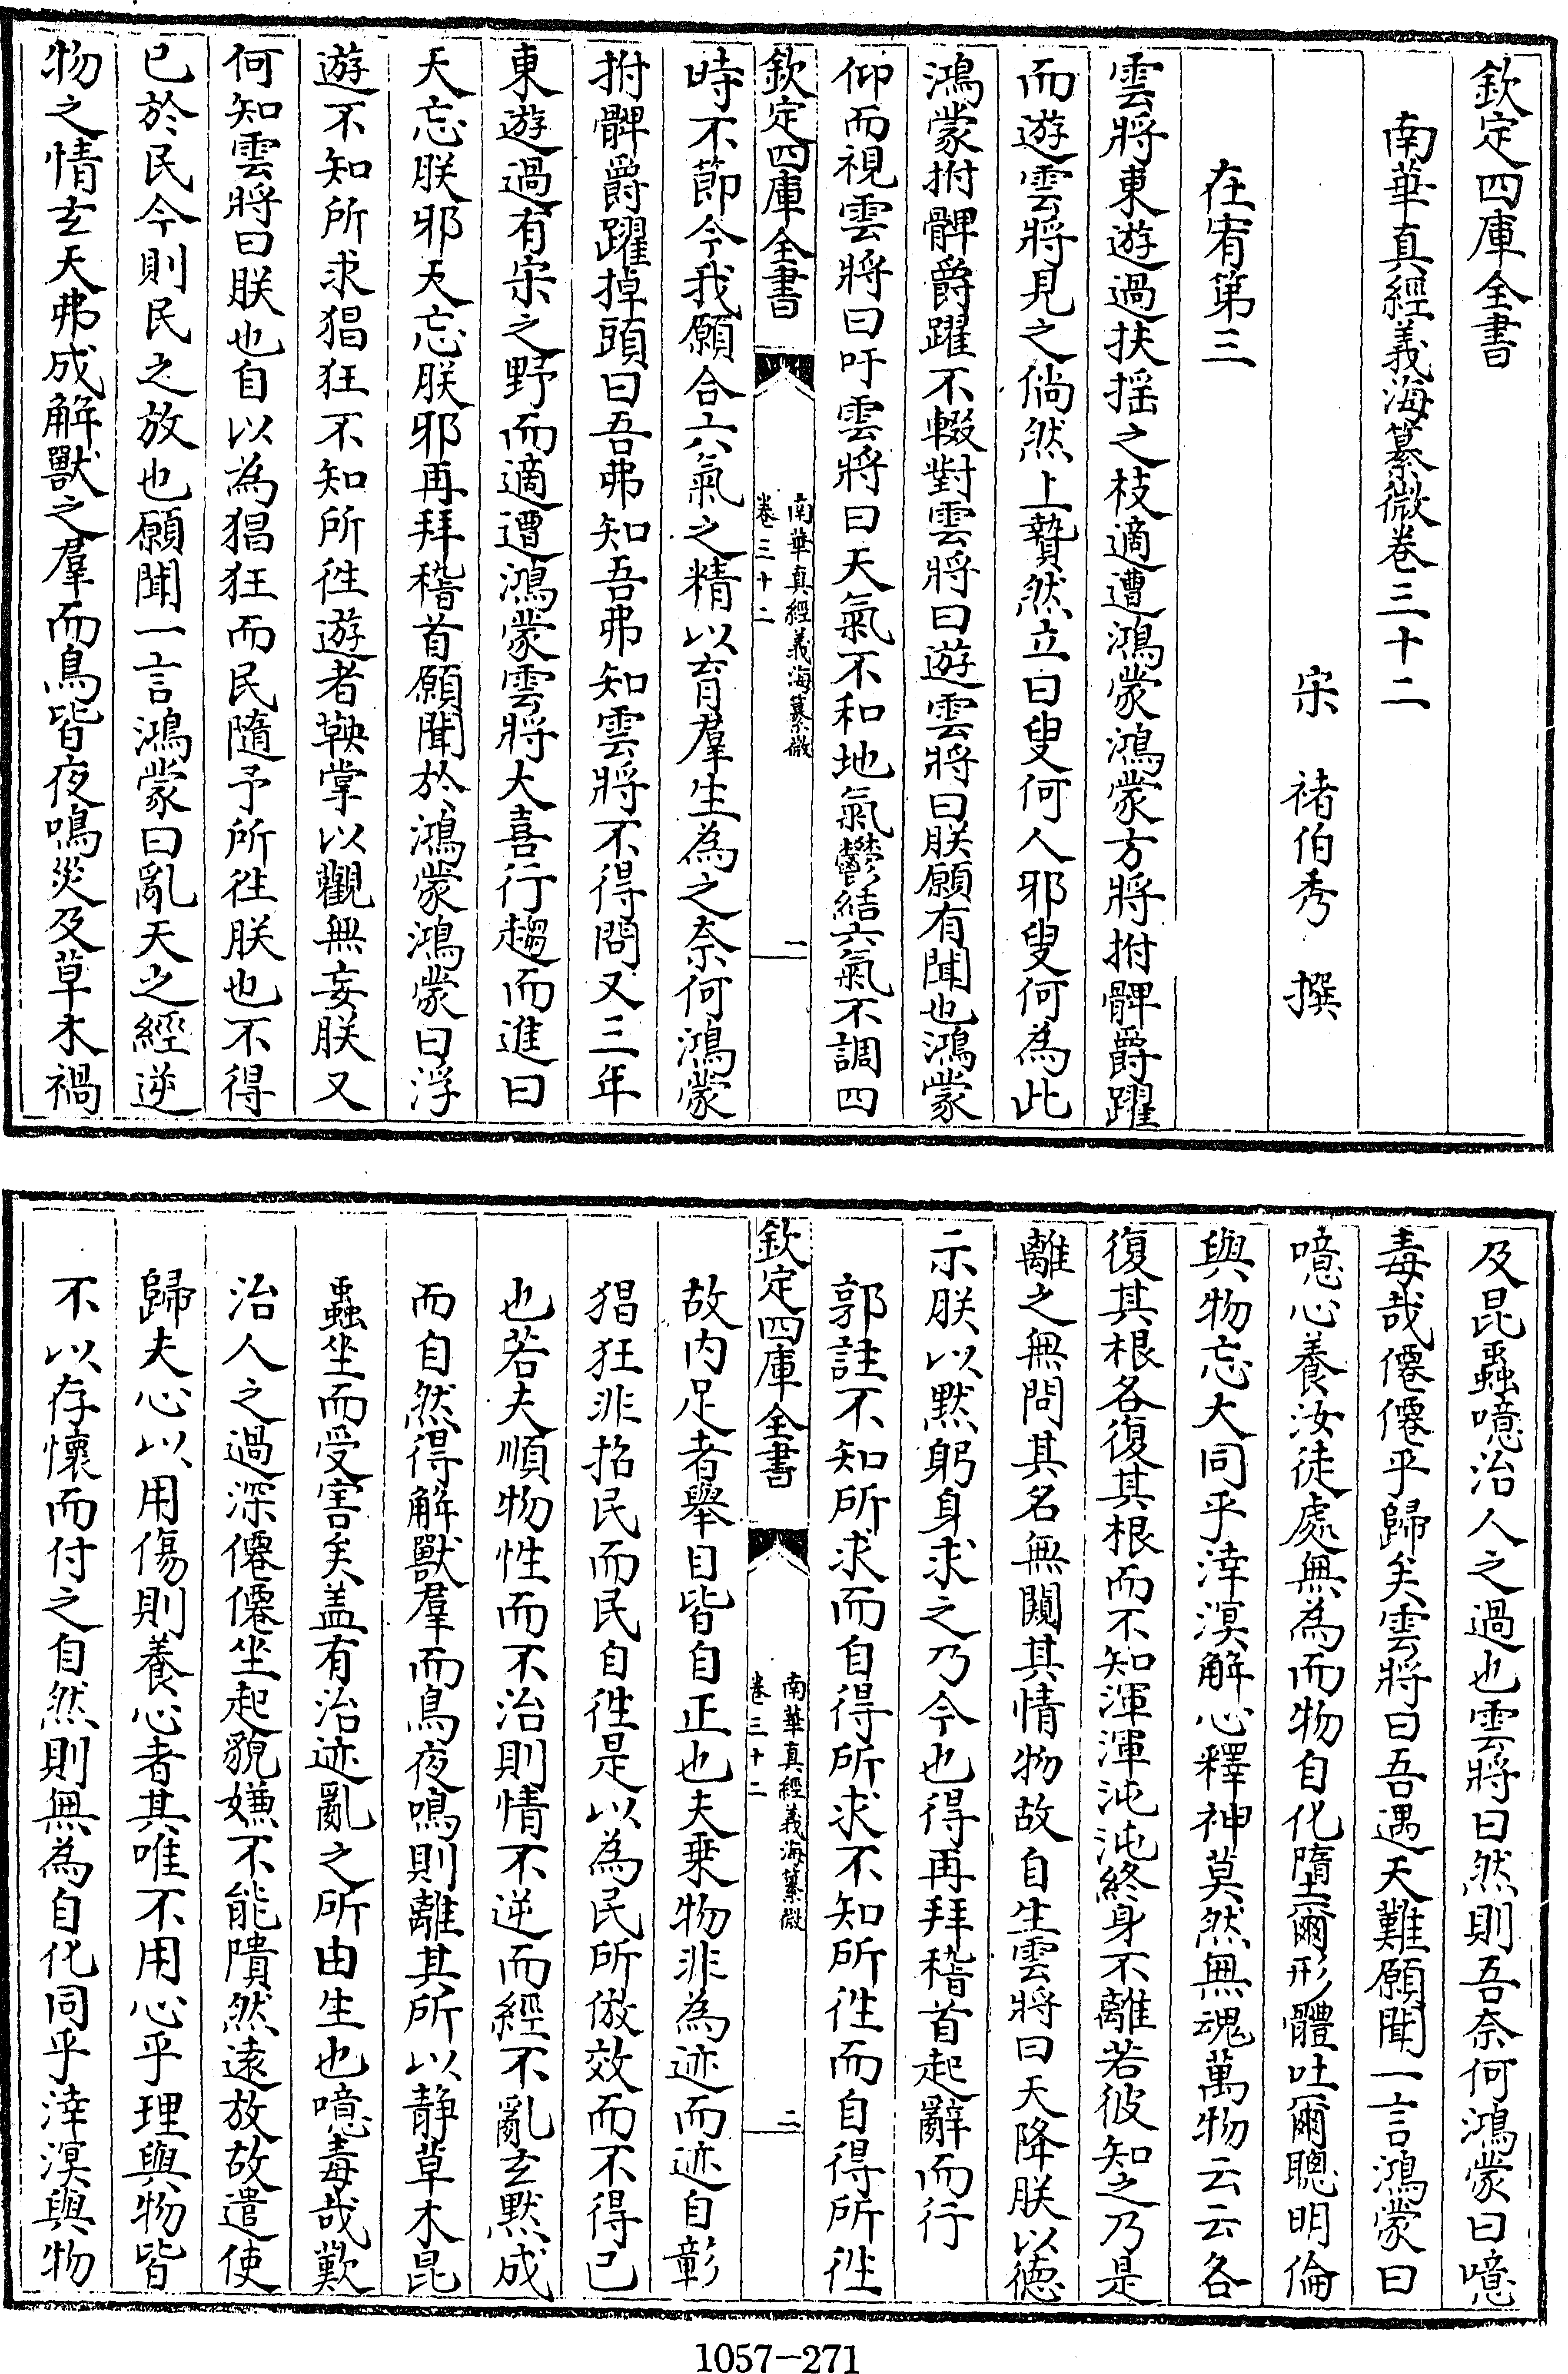 欽定四庫全書
南華真經義海纂微卷三十二
宋 褚伯秀 撰
在宥第三
雲將東遊過扶搖之枝適遭鴻蒙鴻蒙方將拊髀爵躍
而遊雲將見之倘然止贄然立曰叟何人邪叟何為此
鴻蒙拊髀爵躍不輟對雲將曰遊雲將曰朕願有聞也鴻蒙
仰而視雲將曰吁雲將曰天氣不和地氣鬱結六氣不調四
欽定四庫全書
南華真經義海纂微
卷三十二
一
時不節今我願合六氣之精以育羣生為之奈何鴻蒙
拊髀爵躍掉頭曰吾弗知吾弗知雲將不得問又三年
東遊過有宋之野而適遭鴻蒙雲將大喜行趨而進曰
天忘朕邪天忘朕邪再拜稽首願聞於鴻蒙鴻蒙曰浮
遊不知所求猖狂不知所徃遊者鞅掌以觀無妄朕又
何知雲將曰朕也自以為猖狂而民隨予所徃朕也不得
已於民今則民之放也願聞一言鴻蒙曰亂天之經逆
物之情玄天弗成解獸之羣而鳥皆夜鳴災及草木禍
及昆蟲噫治人之過也雲將曰然則吾奈何鴻蒙曰噫
毒哉僊僊乎歸矣雲將曰吾遇天難願聞一言鴻蒙曰
噫心養汝徒處無為而物自化墮爾形體吐爾聰明倫
與物忘大同乎涬溟解心釋神莫然無魂萬物云云各
復其根各復其根而不知渾渾沌沌終身不離若彼知之乃是
離之無問其名無闚其情物故自生雲將曰天降朕以德
示朕以默躬身求之乃今也得再拜稽首起辭而行
郭註不知所求而自得所求不知所徃而自得所徃
欽定四庫全書
南華真經義海纂微
卷三十二
二
故内足者舉目皆自正也夫乗物非為迹而迹自彰
猖狂非招民而民自徃是以為民所倣效而不得已
也若夫順物性而不治則情不逆而經不亂玄黙成
而自然得解獸羣而鳥夜鳴則離其所以静草木昆
蟲坐而受害矣盖有治迹亂之所由生也噫毒哉歎
治人之過深僊僊坐起貌嫌不能隤然逺放故遣使
歸夫心以用傷則養心者其唯不用心乎理與物皆
不以存懷而付之自然則無為自化同乎涬溟與物
1057-271